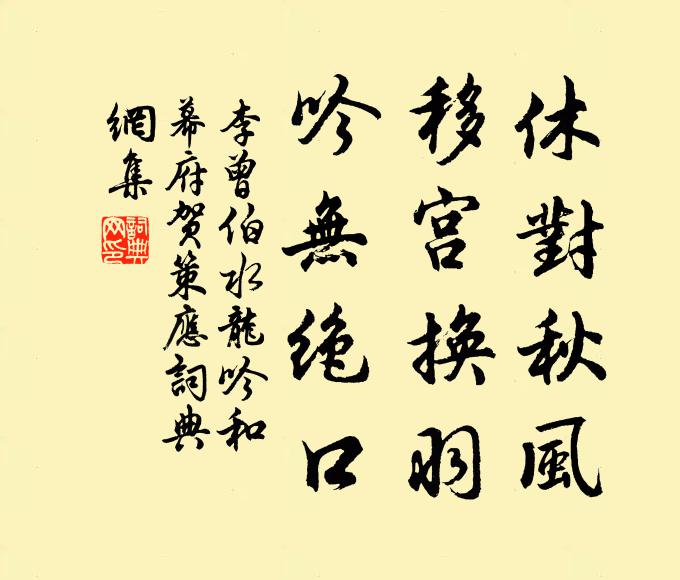 休對秋風
移宮換羽
吟無絶口
李曾伯水龍吟和
幕府賀策應詞典
網集
詞典網印